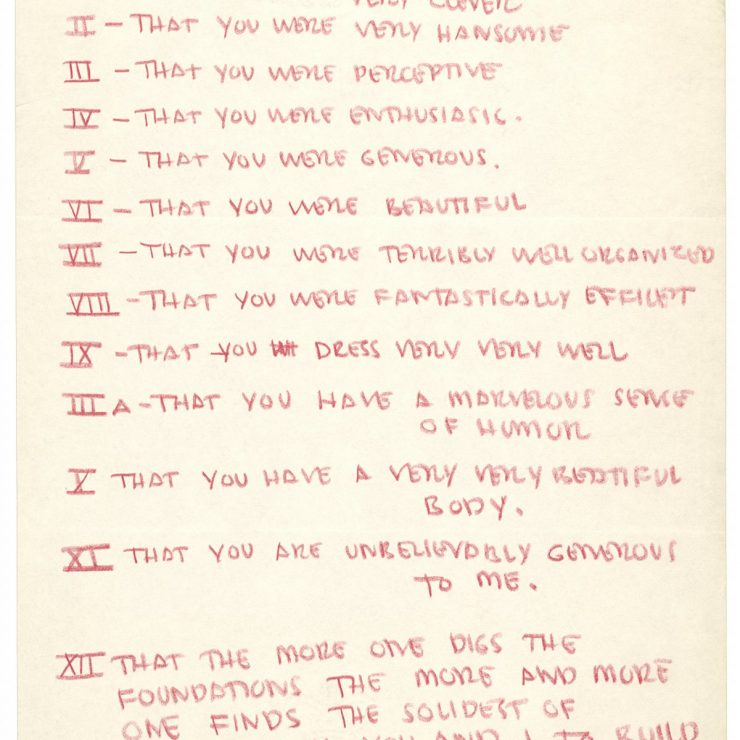 VERY CLEVER
II – THAT YOU WERE VERY HANSOME
III – THAT YOU WERE PERCEPTIVE
IV – THAT YOU WERE ENTHUSIASIC.
V – THAT YOU WERE GENEROUS.
VI – THAT YOU WERE BEAUTIFUL
VII – THAT YOU WERE TERRIBLY WELL ORGANIZED
VIII – THAT YOU WERE FANTASTICALLY EFFICIENT
IX – THAT YOU DRESS VERY VERY WELL
III A – THAT YOU HAVE A MARVELOUS SENSE
OF HUMOR
X THAT YOU HAVE A VERY VERY BEATIFUL
BODY.
XI THAT YOU ARE UNBELIEVABLY GENEROUS
TO ME.
XII THAT THE MORE ONE DIGS THE
FOUNDATIONS THE MORE AND MORE
ONE FINDS THE SOLIDEST OF
YOU AND I TO BUILD